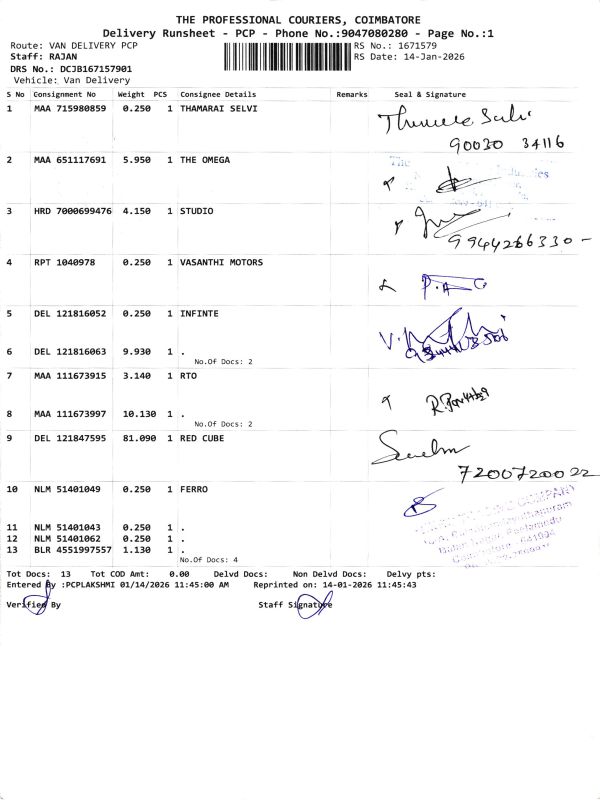 THE PROFESSIONAL COURIERS, COIMBATORE
Delivery Runsheet - PCP - Phone No.:9047080280 - Page No.:1
Route: VAN DELIVERY PCP RS No.: 1671579
Staff: RAJAN RS Date: 14-Jan-2026
DRS No.: DCJB167157901
Vehicle: Van Delivery
S No Consignment No Weight PCS Consignee Details Remarks Seal & Signature
1 MAA 715980859 0.250 1 THAMARAI SELVI
90030 34116
2 MAA 651117691 5.950 1 THE OMEGA
The
3 HRD 7000699476 4.150 1 STUDIO
9944266330-
4 RPT 1040978 0.250 1 VASANTHI MOTORS
5 DEL 121816052 0.250 1 INFINTE
6 DEL 121816063 9.930 1 .
No.Of Docs: 2
7 MAA 111673915 3.140 1 RTO
8 MAA 111673997 10.130 1 .
No.Of Docs: 2
9 DEL 121847595 81.090 1 RED CUBE
7200720022
10 NLM 51401049 0.250 1 FERRO
COMPANY
11 NLM 51401043 0.250 1 .
12 NLM 51401062 0.250 1 .
13 BLR 4551997557 1.130 1 .
No.Of Docs: 4
Tot Docs: 13 Tot COD Amt: 0.00 Delvd Docs: Non Delvd Docs: Delvy pts:
Entered By :PCPLAKSHMI 01/14/2026 11:45:00 AM Reprinted on: 14-01-2026 11:45:43
Verified By Staff Signature